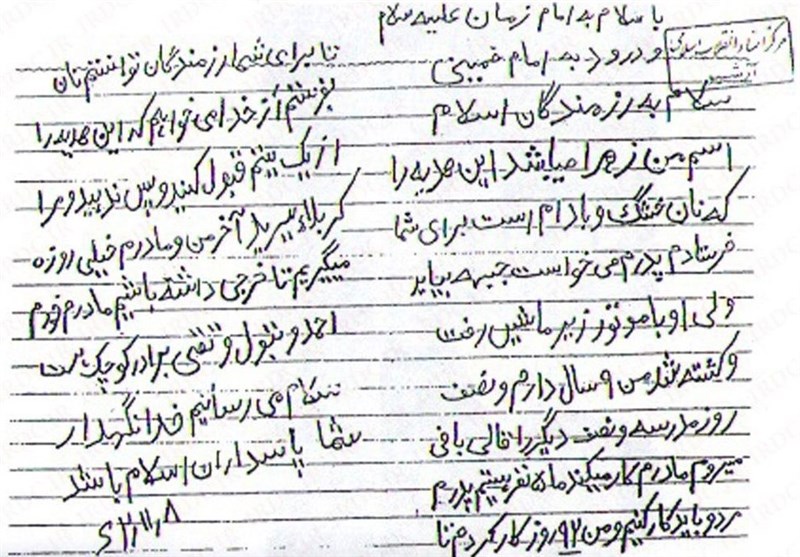 با سلام به امام زمان علیه سلام
و درود به امام خمینی
سلام به رزمندگان اسلام
اسم من زهرا میباشد این هدیه را
که نان خشگ و بادام است برای شما
فرستادم پدرم می خواست جبهه بیاید
ولی او با موتور زیر ماشین رفت
و کشته شد من ۹ سال دارم و نصف
روز مدرسه و نصف دیگر را قالی بافی
میروم مادرم کار میکند ما ۵ نفر هستیم پدرم
مرد و باید کار کنیم و من ۹۲ روز کار کردم تا
تا برای شما رزمندگان توانستم نان
بفرستم از خدا می خواهم که این هدیه را
از یک یتیم قبول کنید و پس ندهید و مرا
کربلا ببرید آخر من و مادرم خیلی روزه
میگیریم تا خرجی داشته باشیم مادرم خودم
احمد و بتول و تقی برادر کوچک
سلام می رسانیم خدا نگهدار
شما پاسداران اسلام باشد